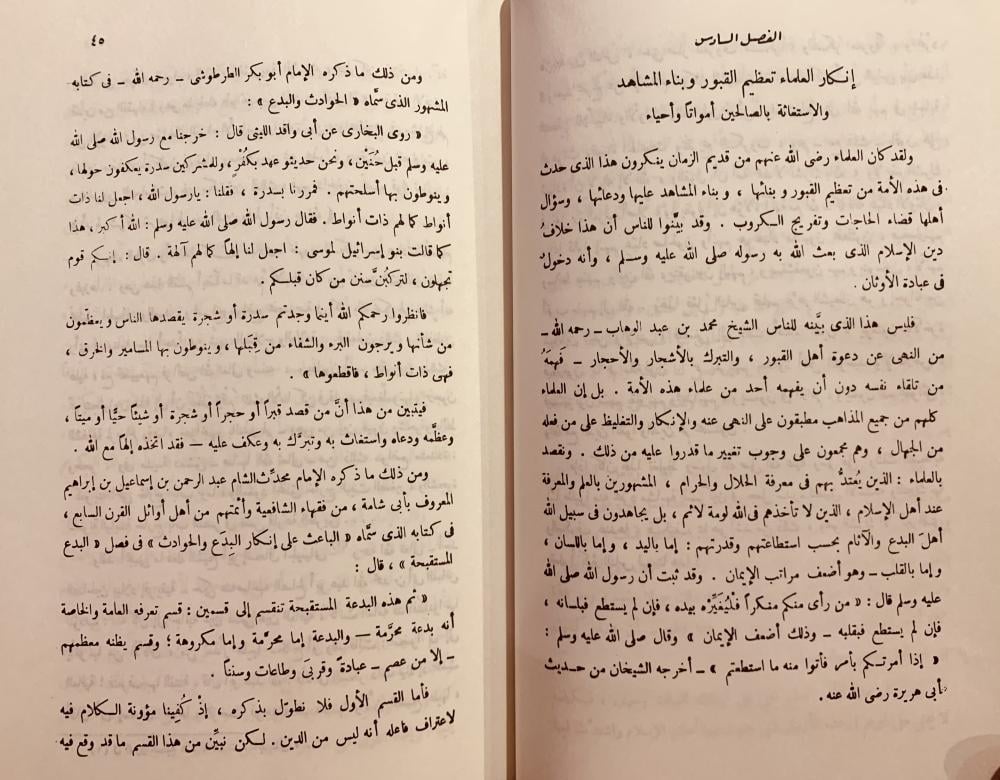 الفصل السادس
إنكار العلماء تعظيم القبور وبناء المشاهد
والاستغاثة بالصالحين أمواتاً وأحياء
ولقد كان العلماء رضى الله عنهم من قديم الزمان ينكرون هذا الذى حدث
فى هذه الأمة من تعظيم القبور و بنائها ، و بناء المشاهد عليها ودعائها ، وسؤال
أهلها قضاء الحاجات وتفريج الكروب . وقد بيَّنوا للناس أن هذا خلافُ
دين الإسلام الذى بعث الله به رسوله صلى الله عليه وسلم ، وأنه دخولٌ
فى عبادة الأوثان .
فليس هذا الذى بيَّنه للناس الشيخ محمد بن عبد الوهاب ــ رحمه الله ــ
من النهى عن دعوة أهل القبور ، والتبرك بالأشجار والأحجار ــ فَهِمَهُ
من تلقاء نفسه دون أن يفهمه أحد من علماء هذه الأمة . بل إن العلماء
كلهم من جميع المذاهب مطبقون على النهى عنه والإنكار والتغليظ على من فعله
من الجهال ، وهم مجمعون على وجوب تغيير ما قدروا عليه من ذلك . ونقصد
بالعلماء : الذين يُعتدُّ بهم فى معرفة الحلال والحرام ، المشهورين بالعلم والمعرفة
عند أهل الإسلام ، الذين لا تأخذهم فى الله لومة لائم ، بل يجاهدون فى سبيل الله
أهلَ البدع والآثام بحسب استطاعتهم وقدرتهم : إما باليد ، وإما باللسان ،
و إما بالقلب ــ وهو أضعف مراتب الإيمان . وقد ثبت أن رسول الله صلى الله
عليه وسلم قال : « من رأى منكم منكراً فلْيُغَيِّرْه بيده ، فإن لم يستطع فبلسانه ،
فإن لم يستطع فبقلبه ــ وذلك أضعف الإيمان » وقال صلى الله عليه وسلم :
« إذا أمرتكم بأمر فأتوا منه ما استطعتم » ــ أخرجه الشيخان من حديث
أبى هريرة رضى الله عنه .
٤٥
ومن ذلك ما ذكره الإمام أبو بكر الطرطوشى ــ رحمه الله ــ فى كتابه
المشهور الذى سمَّاه « الحوادث والبدع » :
« روى البخارى عن أبى واقد الليثى قال : خرجنا مع رسول الله صلى الله
عليه وسلم قبل حُنَيْن ، ونحن حديثو عهد بكُفْر ، وللمشركين سدرة يعكفون حولها ،
و ينوطون بها أسلحتهم . فمررنا بسدرة ، فقلنا : يارسول الله ، اجعل لنا ذات
أنواط كما لهم ذات أنواط . فقال رسول الله صلى الله عليه وسلم : الله أكبر ، هذا
كما قالت بنو إسرائيل لموسى : اجعل لنا إلهاً كما لهم آلهة . قال : إنكم قوم
تجهلون ، لتركَبُنَّ سنن من كان قبلكم .
فانظروا رحمكم الله أينما وجدتم سدرة أو شجرة يقصدها الناس و يعظّمون
من شأنها و يرجون البرء والشفاء من قِبَلها ، و ينوطون بها المسامير والخرق ،
فهى ذات أنواط ، فاقطعوها » .
فيتبين من هذا أنَّ من قصد قبراً أو حجراً أو شجرة أو شيئاً حيًّا أو ميتاً ،
وعظَّمه ودعاه واستغاث به وتبرَّك به وعكف عليه ــ فقد اتخذه إلهاً مع الله .
ومن ذلك ما ذكره الإمام محدِّث الشام عبد الرحمن بن إسماعيل بن إبراهيم
المعروف بأبى شامة ، من فقهاء الشافعية وأئمتهم من أهل أوائل القرن السابع ،
فى كتابه الذى سمَّاه « الباعث على إنكار البِدَع والحوادث » فى فصل « البدع
المستقبحة » ، قال :
« ثم هذه البدعة المستقبحة تنقسم إلى قسمين : قسم تعرفه العامة والخاصة
أنه بدعة محرَّمة ــ والبدعة إما محرَّمة وإما مكروهة ؛ وقسم يظنه معظمهم
ــ إلا من عصم ــ عبادةً وقربىَ وطاعات وسنناً .
فأما القسم الأول فلا نطوّل بذكره ، إذْ كُفِينا مؤونة الكلام فيه
لاعتراف فاعله أنه ليس من الدين . لكن نبيِّن من هذا القسم ما قد وقع فيه